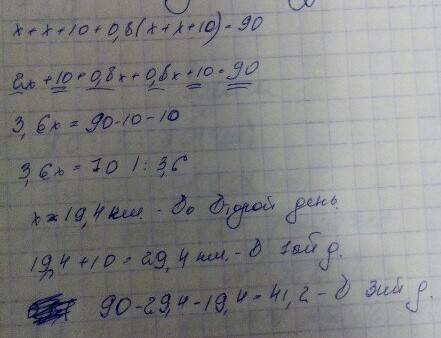 x+x+10+0,8(x+x+10)=90
2x+10+0,8x+0,8x+10=90
3,6x=90-10-10
3,6x=70 | : 3,6
x≈19,4 км. - во второй день.
19,4+10=29,4 км. - в 1ой д.
90-29,4-19,4=41,2 - в 3ий д.